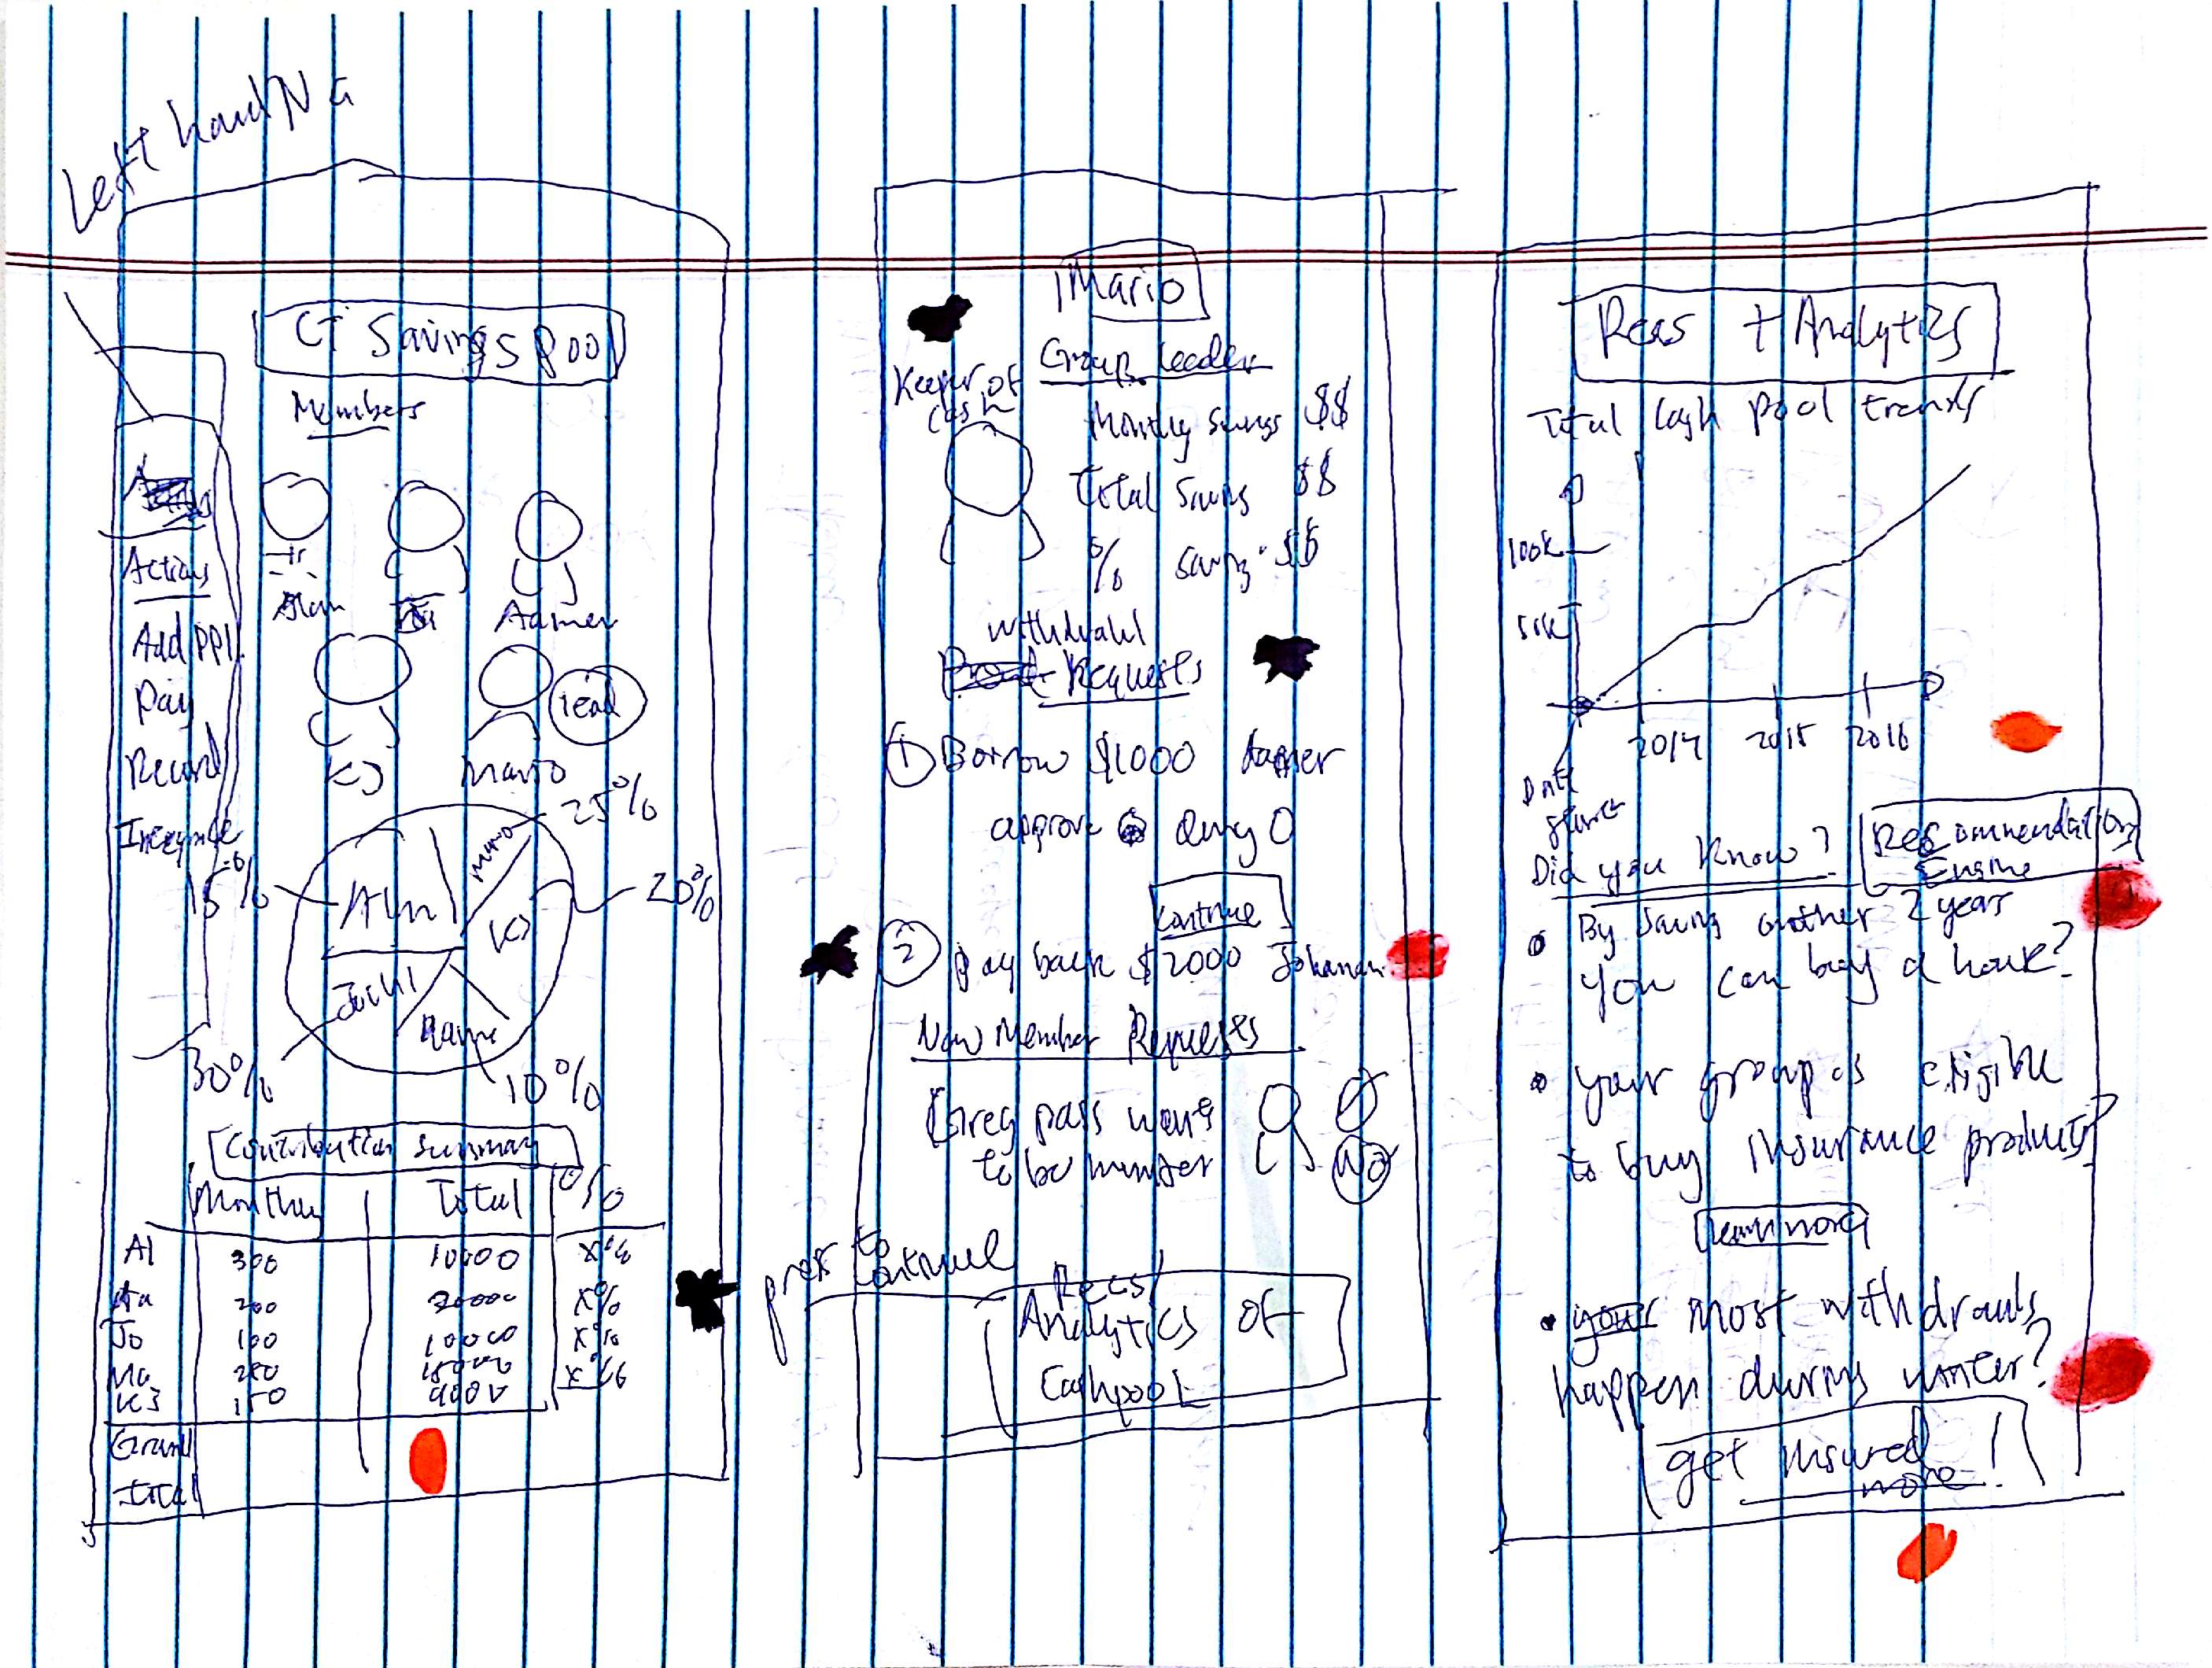 Left hand Na
CT Savings Pool
Members
Actions
Add PPl
Pay
Record
Alan
Aamer
lead
KJ
Mario
25%
15%
20%
Mario
Aln
KJ
30%
10%
Contribution Summary
Monthly Total %
Al 300 10000 X%
Aa 200 20000 X%
Jo 100 10000 X%
Ma 200 X%
KJ 150 9000
Grand
total
Mario
Group Leader
Keeper of
Cash
Monthly Savings $$
Total Savings $$
% saving $$
withdrawl
Requests
1 Borrow $1000 Aamer
approve Deny
Continue
2 pay back $2000 Johanan
New Member Requests
Greg pass wants
to be member
No
press to continue
Recs/
Analytics of
Cashpool
Recs + Analytics
Total Cash pool trends
100k
50k
2014 2015 2016
Date
start
Did you know?
Recommendation
Engine
By saving another 2 years
you can buy a house?
your group is eligible
to buy insurance products?
learn more
your most withdrawls
happen during winter?
get insured
more!